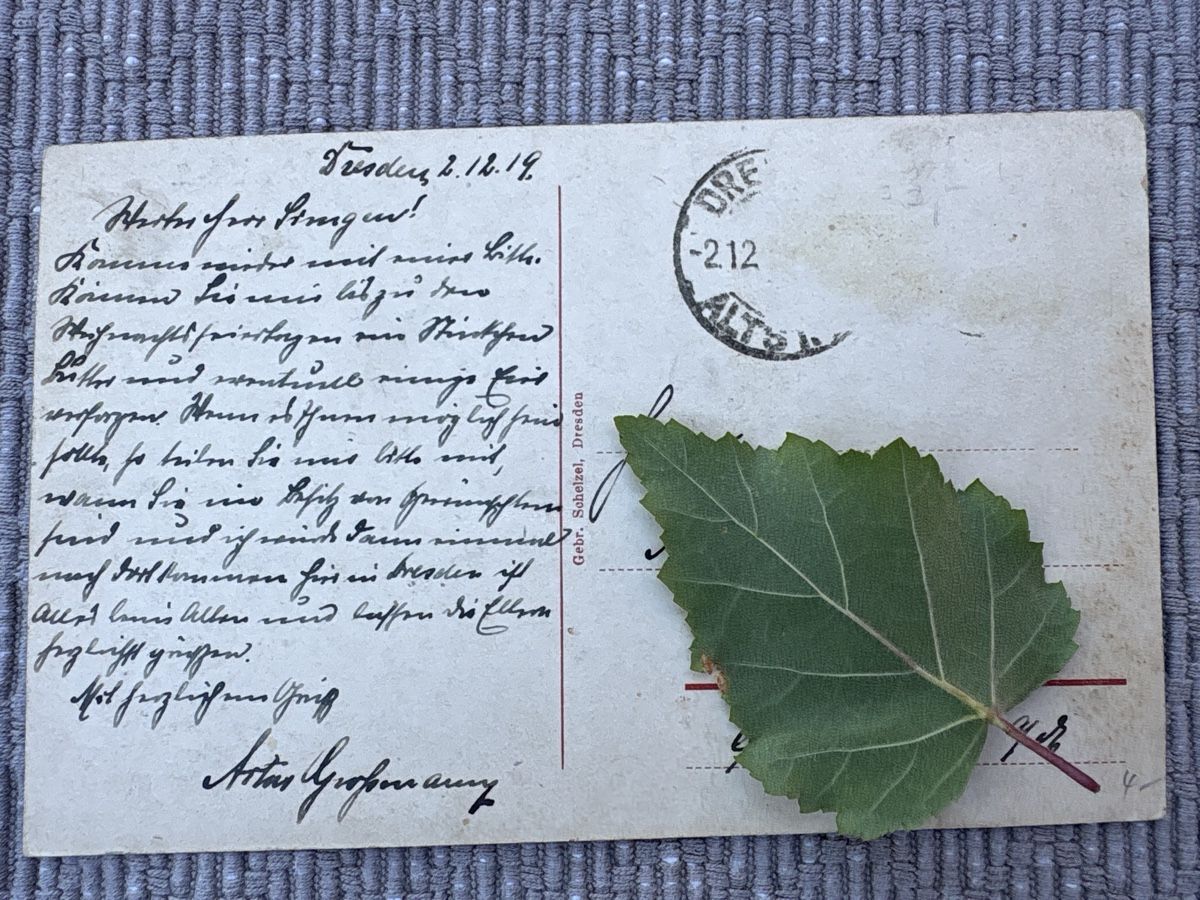 Dresden, 2.12.19.
Werter Herr
Komme wieder mit einer Bitte.
Können Sie mir bis zu den
Weihnachtsfeiertagen ein Stückchen
Butter und eventuell einige Eier
versorgen. Wenn es Ihnen möglich sein
sollte, so teilen Sie mir bitte mit,
wann Sie im Besitz von Gewünschten
sind und ich würde dann einmal
nach dort kommen hier in Dresden ist
Alles beim Alten und lassen die Eltern
herzlichst grüßen.
Mit herzlichem Gruß
Großmann
Gebr. Schelzel, Dresden
DRE
-2.12
ALTST.
4-